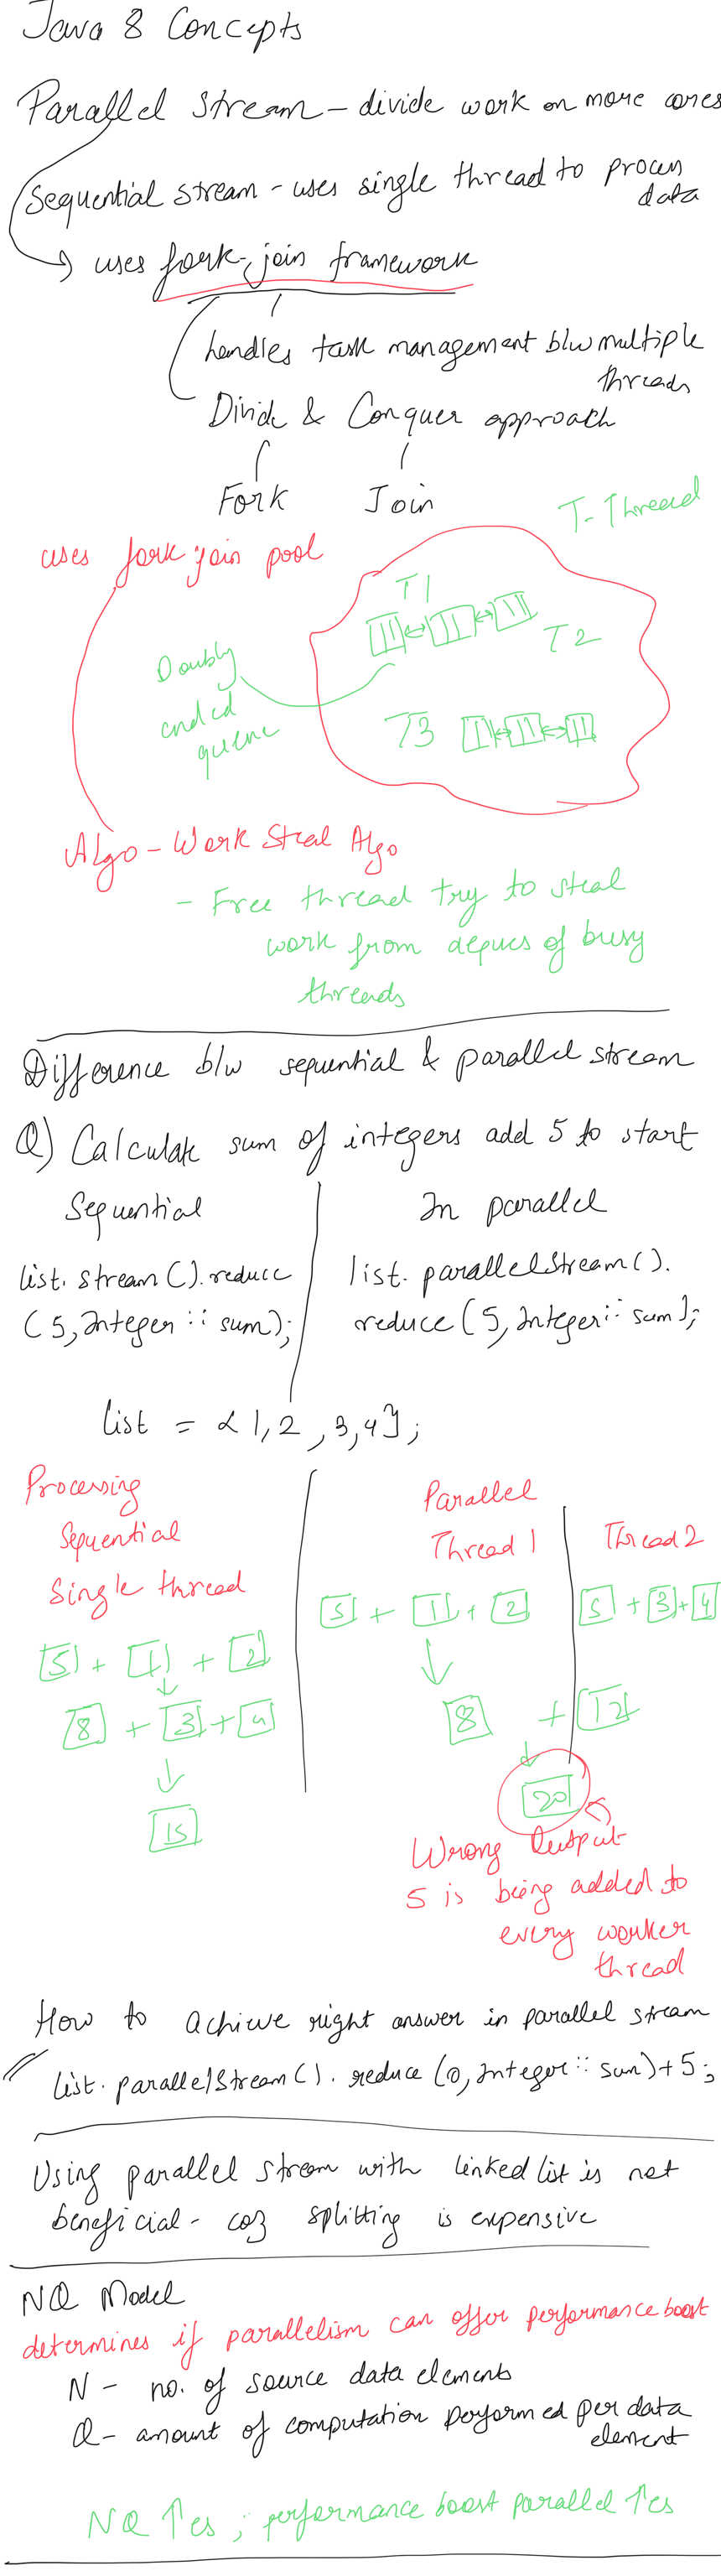 Java 8 Concepts
Parallel Stream - divide work on more cores
Sequential stream - uses single thread to process
data
uses fork-join framework
handles task management b/w multiple
threads
Divide & Conquer approach
Fork Join
T-Thread
uses fork join pool
T1
T2
Doubly
ended
queue
T3
Algo - Work Steal Algo
- Free thread try to steal
work from deques of busy
threads
Difference b/w sequential & parallel stream
Q) Calculate sum of integers add 5 to start
Sequential In parallel
list.stream().reduce list.parallelStream().
(5,Integer::sum); reduce(5,Integer::sum);
list = {1,2,3,4};
Processing Parallel
Sequential Thread 1 Thread 2
Single thread
5 + 1 + 2 5 + 3 + 4
5 + 1 + 2
8 + 3 + 4 8 + 12
15 20
Wrong Output
5 is being added to
every worker
thread
How to achieve right answer in parallel stream
list.parallelStream().reduce(0,Integer::sum)+5;
Using parallel stream with linked list is not
beneficial - coz splitting is expensive
NQ Model
determines if parallelism can offer performance boost
N - no. of source data elements
Q - amount of computation performed per data
element
NQ ↑es ; performance boost parallel ↑es